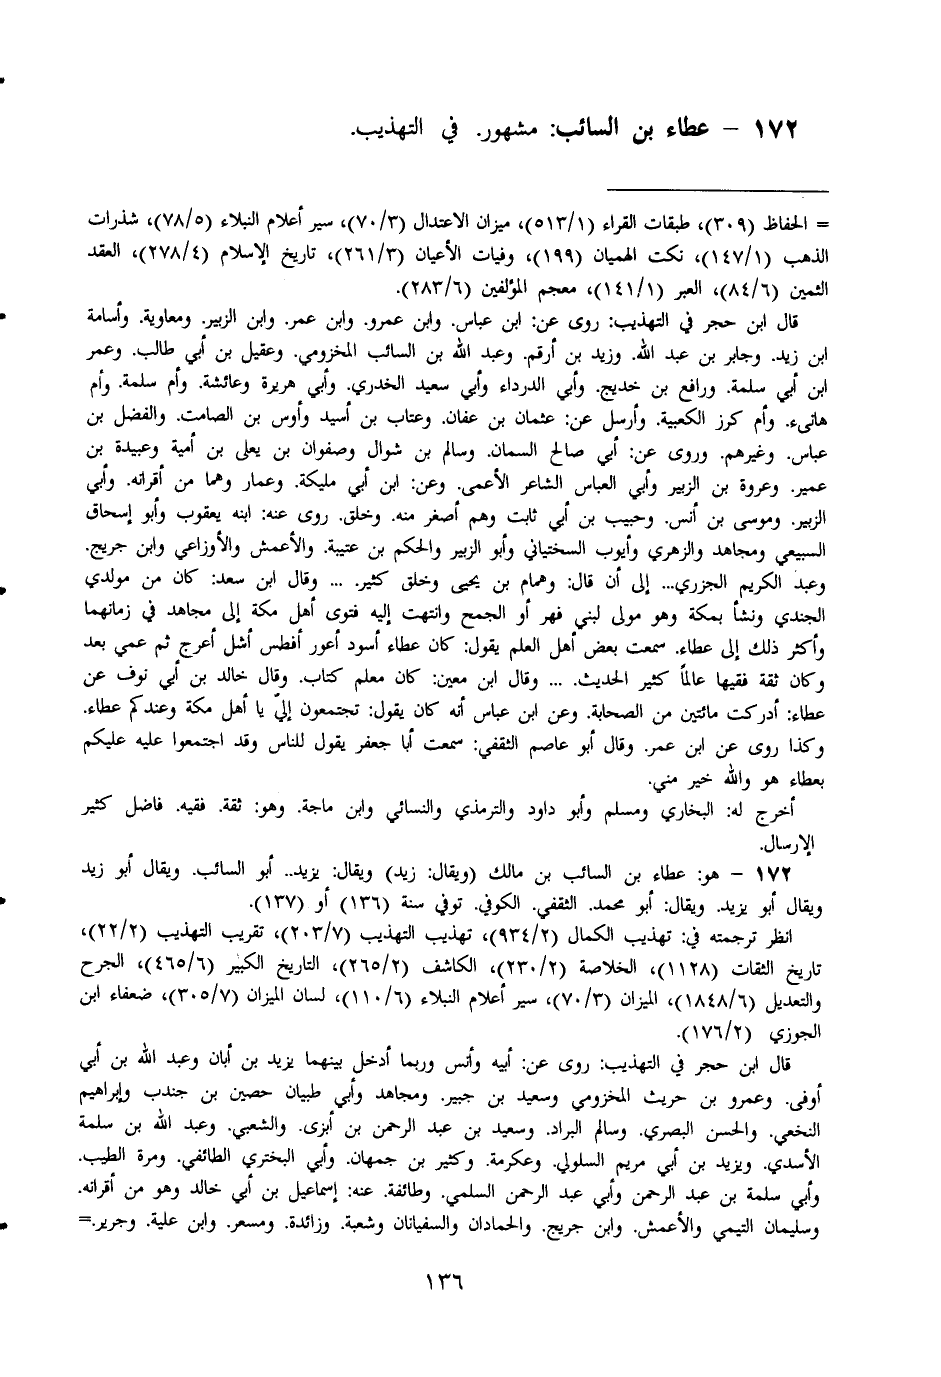 ١٧٢ – عطاء بن السائب: مشهور. في التهذيب.
= الحفاظ (٣٠٩)، طبقات القراء (٥١٣/١)، ميزان الاعتدال (٧٠/٣)، سير أعلام النبلاء (٧٨/٥)، شذرات
الذهب (١٤٧/١)، نكت الهميان (١٩٩)، وفيات الأعيان (٢٦١/٣)، تاريخ الإسلام (٢٧٨/٤)، العقد
الثمين (٨٤/٦)، العبر (١٤١/١)، معجم المؤلفين (٢٨٣/٦).
قال ابن حجر في التهذيب: روى عن: ابن عباس. وابن عمرو. وابن عمر. وابن الزبير. ومعاوية. وأسامة
ابن زيد. وجابر بن عبد الله. وزيد بن أرقم. وعبد الله بن السائب المخزومي. وعقيل بن أبي طالب. وعمر
ابن أبي سلمة. ورافع بن خديج. وأبي الدرداء وأبي سعيد الخدري. وأبي هريرة وعائشة. وأم سلمة. وأم
هانىء. وأم كرز الكعبية. وأرسل عن: عثمان بن عفان. وعتاب بن أسيد وأوس بن الصامت. والفضل بن
عباس. وغيرهم. وروى عن: أبي صالح السمان. وسالم بن شوال وصفوان بن يعلى بن أمية وعبيدة بن
عمير. وعروة بن الزبير وأبي العباس الشاعر الأعمى. وعن: ابن أبي مليكة. وعمار وهما من أقرانه. وأبي
الزبير. وموسى بن أنس. وحبيب بن أبي ثابت وهم أصغر منه. وخلق. روى عنه: ابنه يعقوب وأبو إسحاق
السبيعي ومجاهد والزهري وأيوب السختياني وأبو الزبير والحكم بن عتيبة. والأعمش والأوزاعي وابن جريج.
وعبد الكريم الجزري... إلى أن قال: وهمام بن يحيى وخلق كثير. ... وقال ابن سعد: كان من مولدي
الجندي ونشأ بمكة وهو مولى لبني فهر أو الجمح وانتهت إليه فتوى أهل مكة إلى مجاهد في زمانهما
وأكثر ذلك إلى عطاء. سمعت بعض أهل العلم يقول: كان عطاء أسود أعور أفطس أشل أعرج ثم عمي بعد
وكان ثقة فقيها عالماً كثير الحديث. ... وقال ابن معين: كان معلم كتاب. وقال خالد بن أبي نوف عن
عطاء: أدركت مائتين من الصحابة. وعن ابن عباس أنه كان يقول: تجتمعون إليّ يا أهل مكة وعندكم عطاء.
وكذا روى عن ابن عمر. وقال أبو عاصم الثقفي: سمعت أبا جعفر يقول للناس وقد اجتمعوا عليه عليكم
بعطاء هو والله خير مني.
أخرج له: البخاري ومسلم وأبو داود والترمذي والنسائي وابن ماجة. وهو: ثقة. فقيه. فاضل كثير
الإرسال.
١٧٢ – هو: عطاء بن السائب بن مالك (ويقال: زيد) ويقال: يزيد.. أبو السائب. ويقال أبو زيد
ويقال أبو يزيد. ويقال: أبو محمد. الثقفي. الكوفي. توفي سنة (١٣٦) أو (١٣٧).
انظر ترجمته في: تهذيب الكمال (٩٣٤/٢)، تهذيب التهذيب (٢٠٣/٧)، تقريب التهذيب (٢٢/٢)،
تاريخ الثقات (١١٢٨)، الخلاصة (٢٣٠/٢)، الكاشف (٢٦٥/٢)، التاريخ الكبير (٤٦٥/٦)، الجرح
والتعديل (١٨٤٨/٦)، الميزان (٧٠/٣)، سير أعلام النبلاء (١١٠/٦)، لسان الميزان (٣٠٥/٧)، ضعفاء ابن
الجوزي (١٧٦/٢).
قال ابن حجر في التهذيب: روى عن: أبيه وأنس وربما أدخل بينهما يزيد بن أبان وعبد الله بن أبي
أوفى. وعمرو بن حريث المخزومي وسعيد بن جبير. ومجاهد وأبي ظبيان حصين بن جندب وإبراهيم
النخعي. والحسن البصري. وسالم البراد. وسعيد بن عبد الرحمن بن أبزى. والشعبي. وعبد الله بن سلمة
الأسدي. ويزيد بن أبي مريم السلولي. وعكرمة. وكثير بن جمهان. وأبي البختري الطائفي. ومرة الطيب.
وأبي سلمة بن عبد الرحمن وأبي عبد الرحمن السلمي. وطائفة. عنه: إسماعيل بن أبي خالد وهو من أقرانه.
وسليمان التيمي والأعمش. وابن جريج. والحمادان والسفيانان وشعبة. وزائدة. ومسعر. وابن علية. وجرير.=
١٣٦